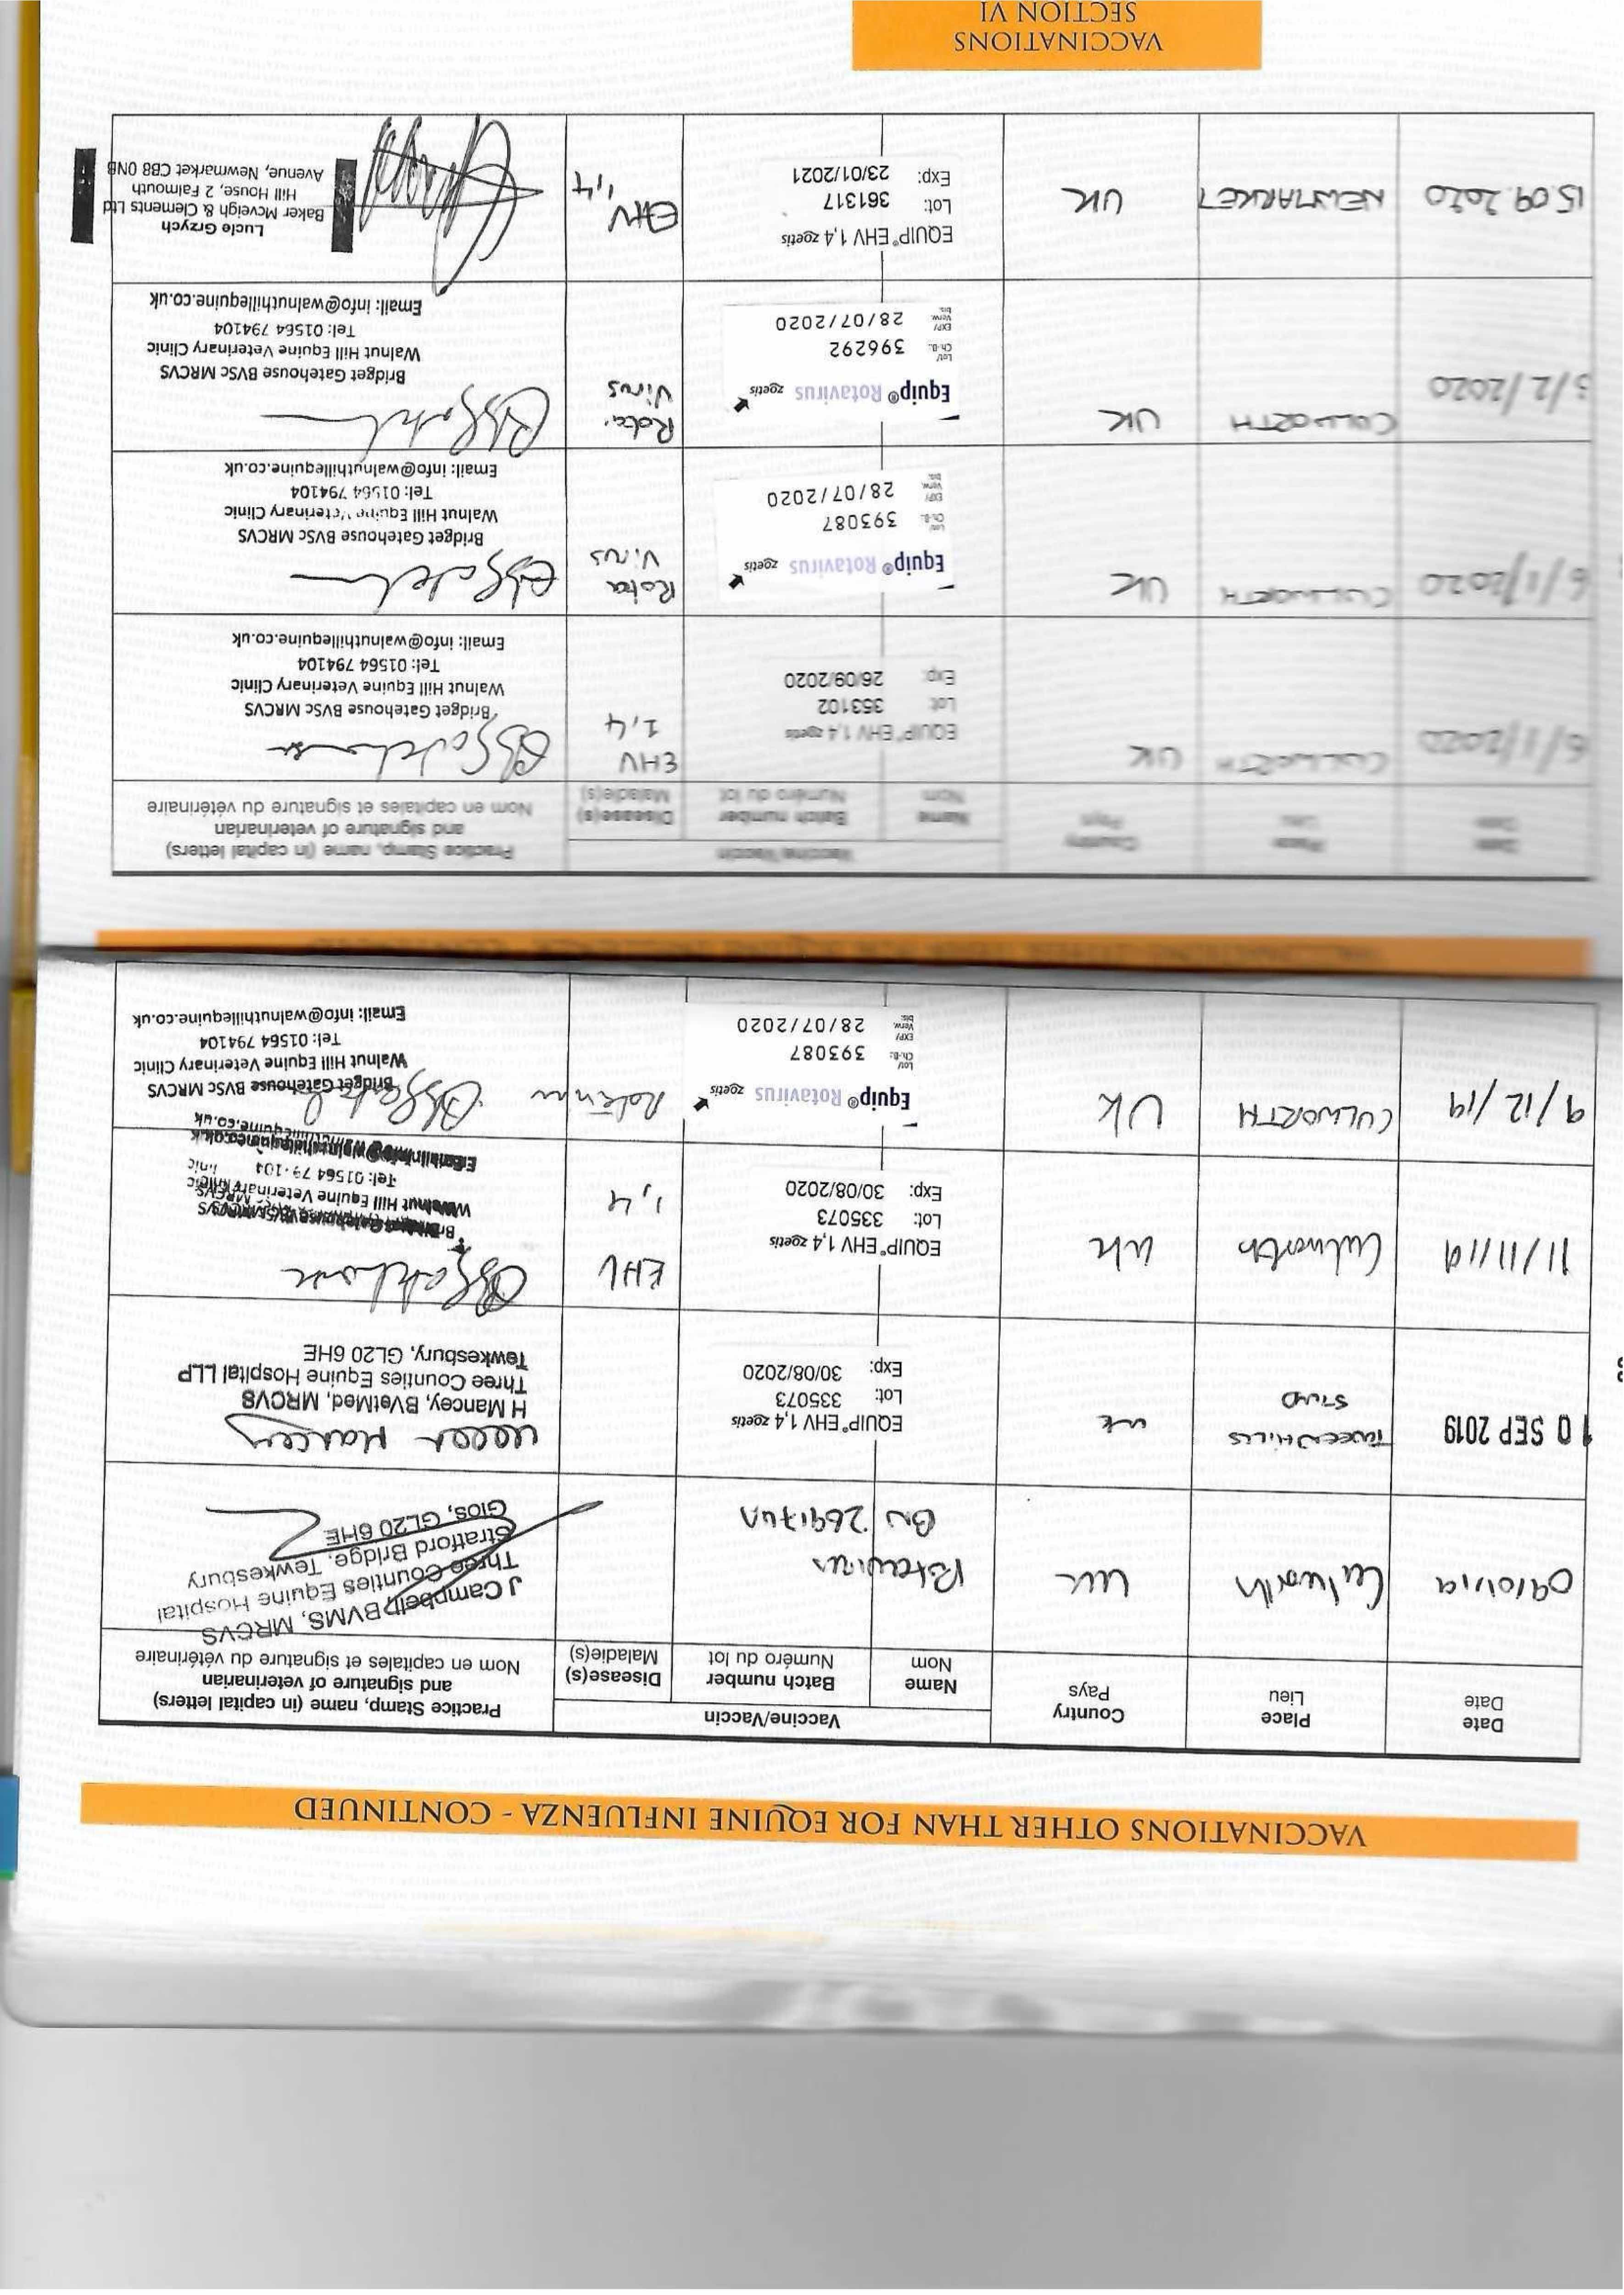 VACCINATIONS OTHER THAN FOR EQUINE INFLUENZA - CONTINUED
Date
Date
Place
Lieu
Country
Pays
Vaccine/Vaccin
Name
Nom
Batch number
Numéro du lot
Disease(s)
Maladie(s)
Practice Stamp, name (in capital letters)
and signature of veterinarian
Nom en capitales et signature du vétérinaire
Culworth
UK
Rotavirus
BN
J Campbell BVMS, MRCVS
Three Counties Equine Hospital
Stratford Bridge, Tewkesbury
Glos, GL20 6HE
10 SEP 2019
TWEENHILLS
STUD
UK
EQUIP® EHV 1,4 zoetis
Lot: 335073
Exp: 30/08/2020
H Mancey, BVetMed, MRCVS
Three Counties Equine Hospital LLP
Tewkesbury, GL20 6HE
11/11/19
Culworth
UK
EQUIP® EHV 1,4 zoetis
Lot: 335073
Exp: 30/08/2020
EHV
1,4
Walnut Hill Equine Veterinary Clinic
Tel: 01564
9/12/19
CULWORTH
UK
Equip® Rotavirus zoetis
Lot/
Ch.-B.: 393087
EXP/
Verw.
bis: 28/07/2020
Bridget Gatehouse BVSc MRCVS
Walnut Hill Equine Veterinary Clinic
Tel: 01564 794104
Email: info@walnuthillequine.co.uk
Date
Place
Country
Pays
Vaccine/Vaccin
Name
Nom
Batch number
Numéro du lot
Disease(s)
Maladie(s)
Practice Stamp, name (in capital letters)
and signature of veterinarian
Nom en capitales et signature du vétérinaire
6/1/2020
CULWORTH
UK
EQUIP® EHV 1,4 zoetis
Lot: 353102
Exp: 26/09/2020
EHV
1,4
Bridget Gatehouse BVSc MRCVS
Walnut Hill Equine Veterinary Clinic
Tel: 01564 794104
Email: info@walnuthillequine.co.uk
6/1/2020
CULWORTH
UK
Equip® Rotavirus zoetis
Lot/
Ch.-B.: 393087
EXP/
Verw.
bis: 28/07/2020
Rota
Virus
Bridget Gatehouse BVSc MRCVS
Walnut Hill Equine Veterinary Clinic
Tel: 01564 794104
Email: info@walnuthillequine.co.uk
3/2/2020
CULWORTH
UK
Equip® Rotavirus zoetis
Lot/
Ch.-B.: 396292
EXP/
Verw.
bis: 28/07/2020
Rota
Virus
Bridget Gatehouse BVSc MRCVS
Walnut Hill Equine Veterinary Clinic
Tel: 01564 794104
Email: info@walnuthillequine.co.uk
15.09.2020
NEWMARKET
UK
EQUIP® EHV 1,4 zoetis
Lot: 361317
Exp: 23/01/2021
EHV
1,4
Lucie Grzych
Baker Mcveigh & Clements Ltd
Hill House, 2 Falmouth
Avenue, Newmarket CB8 0NB
VACCINATIONS
SECTION VI